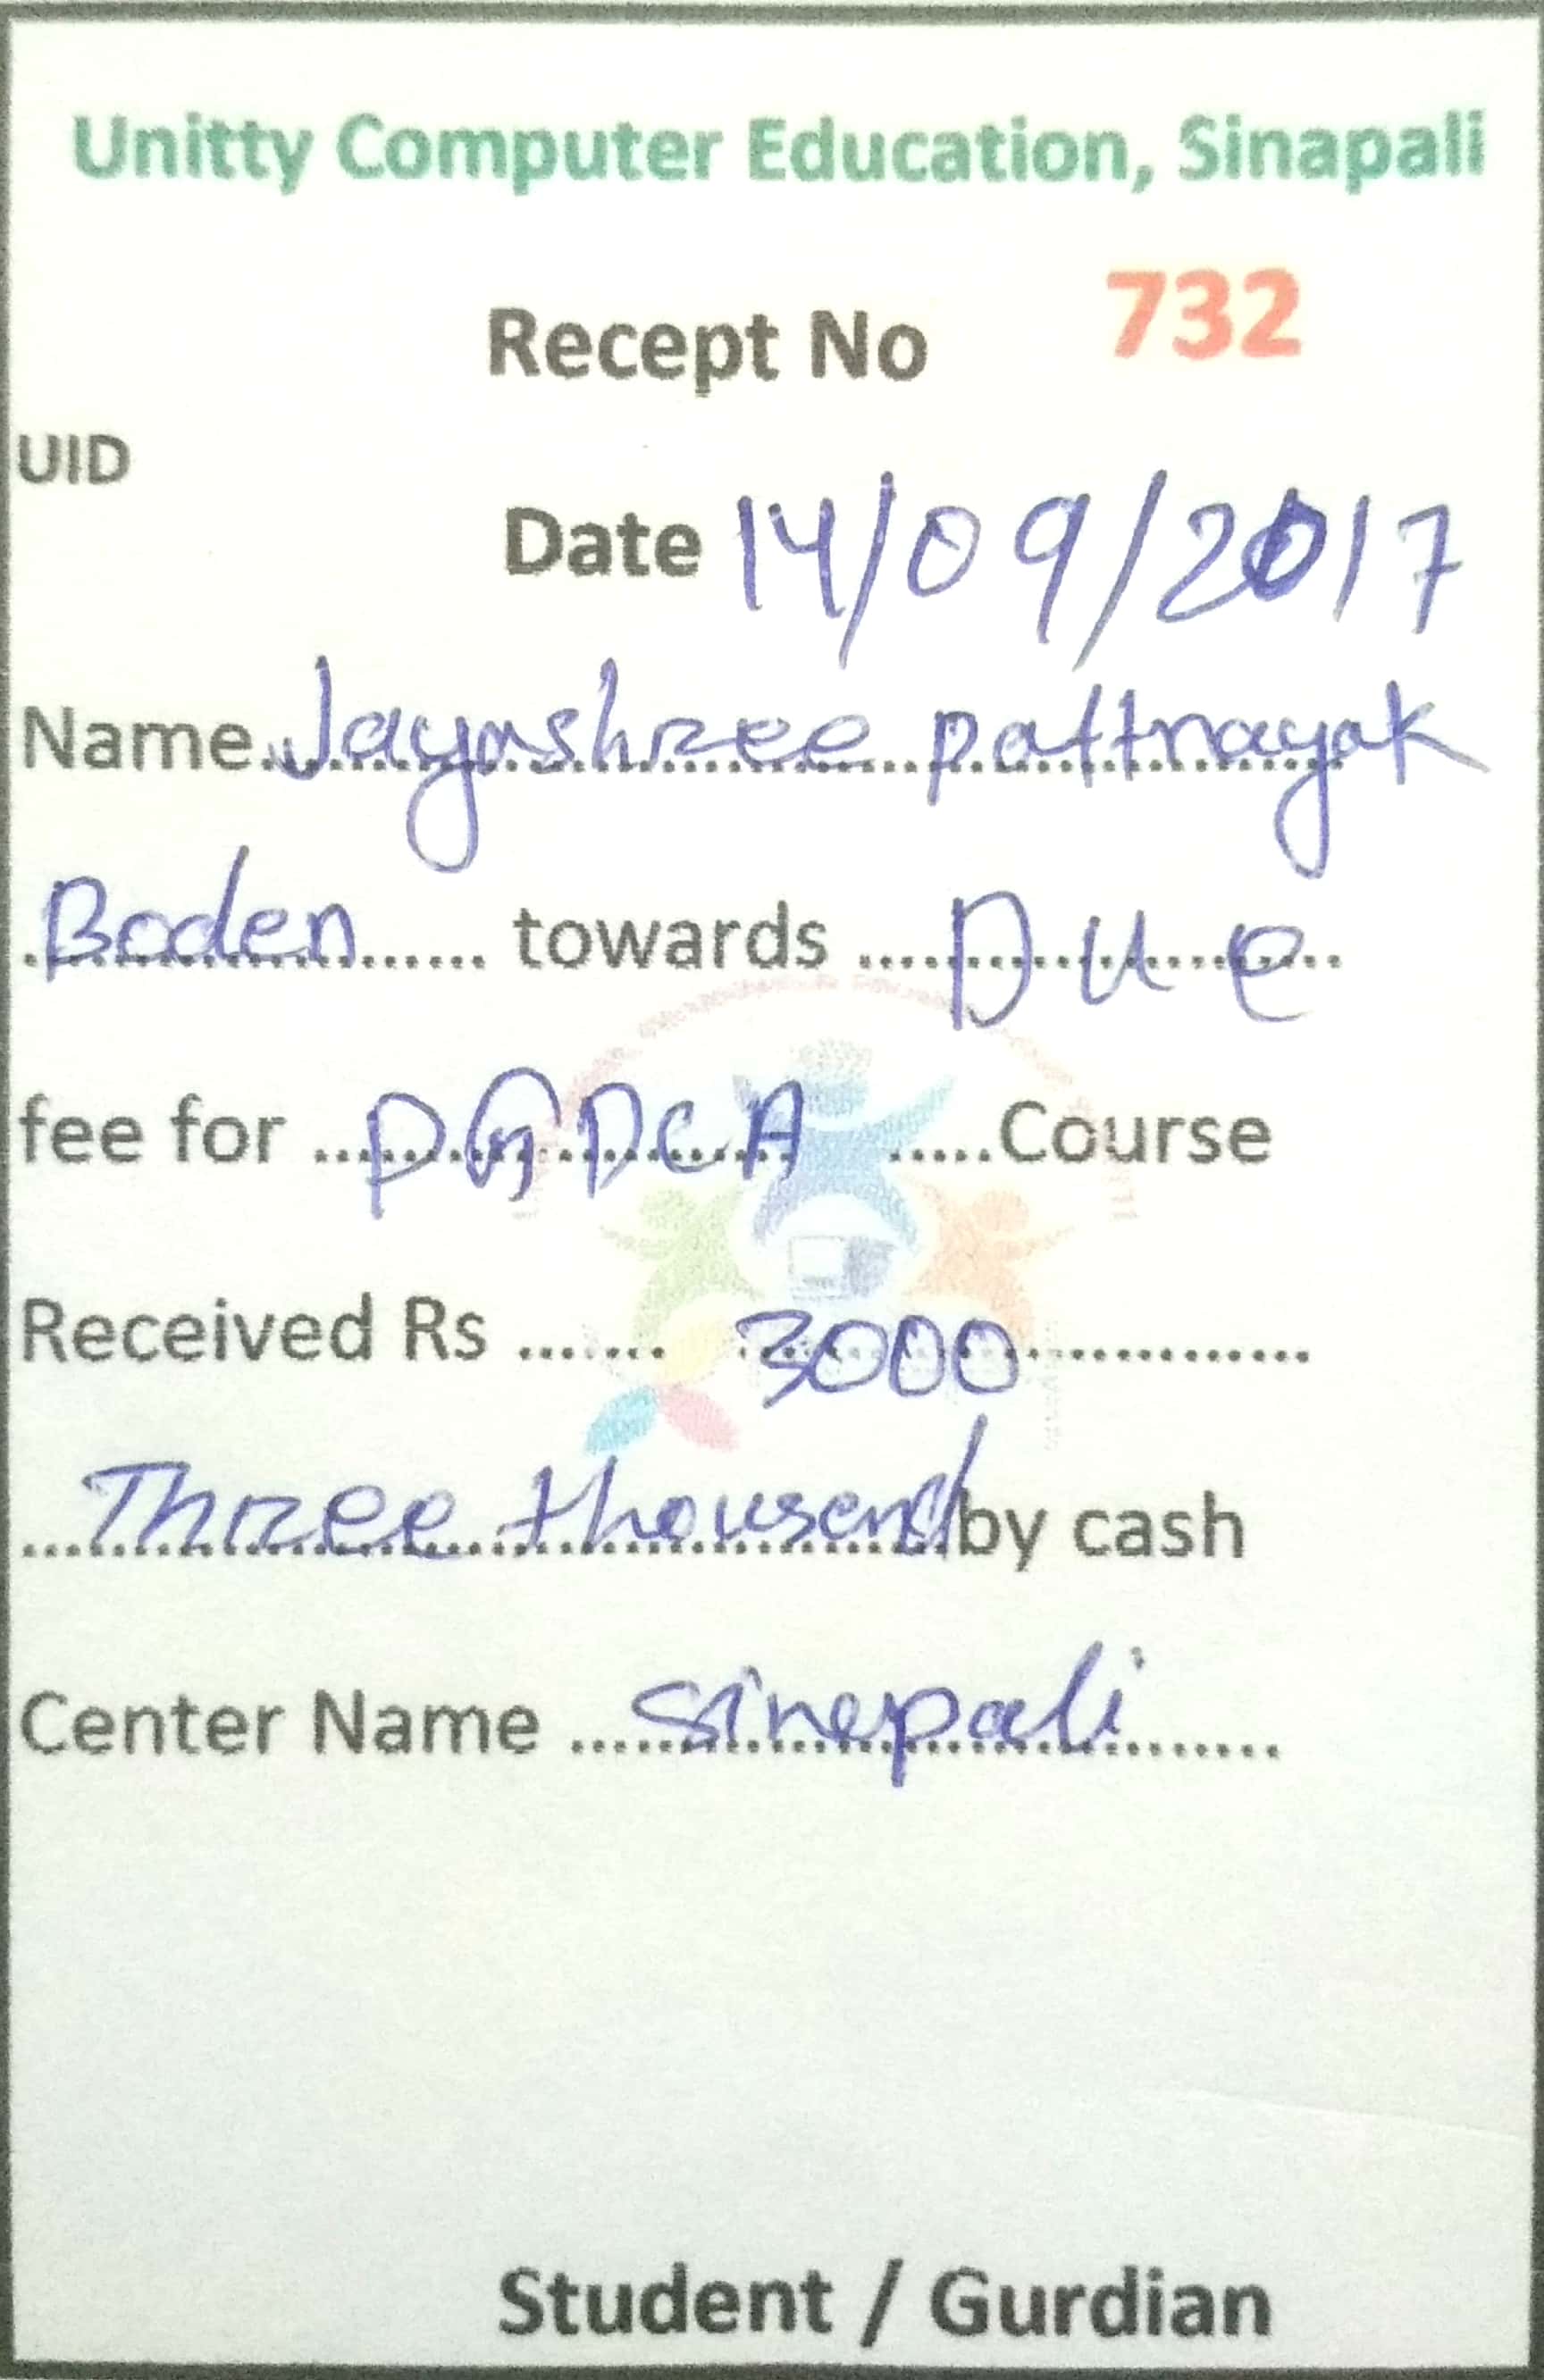 Unitty Computer Education, Sinapali
Recept No 732
UID
Date 14/09/2017
Name Jayashree pattnayak
Boden towards Due
fee for PGDCA Course
Received Rs 3000
Three thousend by cash
Center Name Sinepali
Student / Gurdian